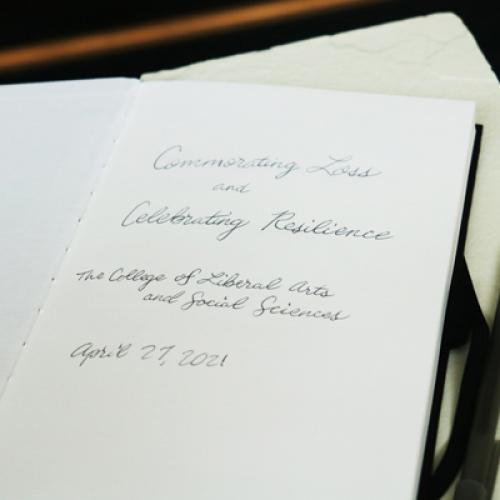 Commorating Loss
and
Celebrating Resilience
The College of Liberal Arts
and Social Sciences
April 27, 2021